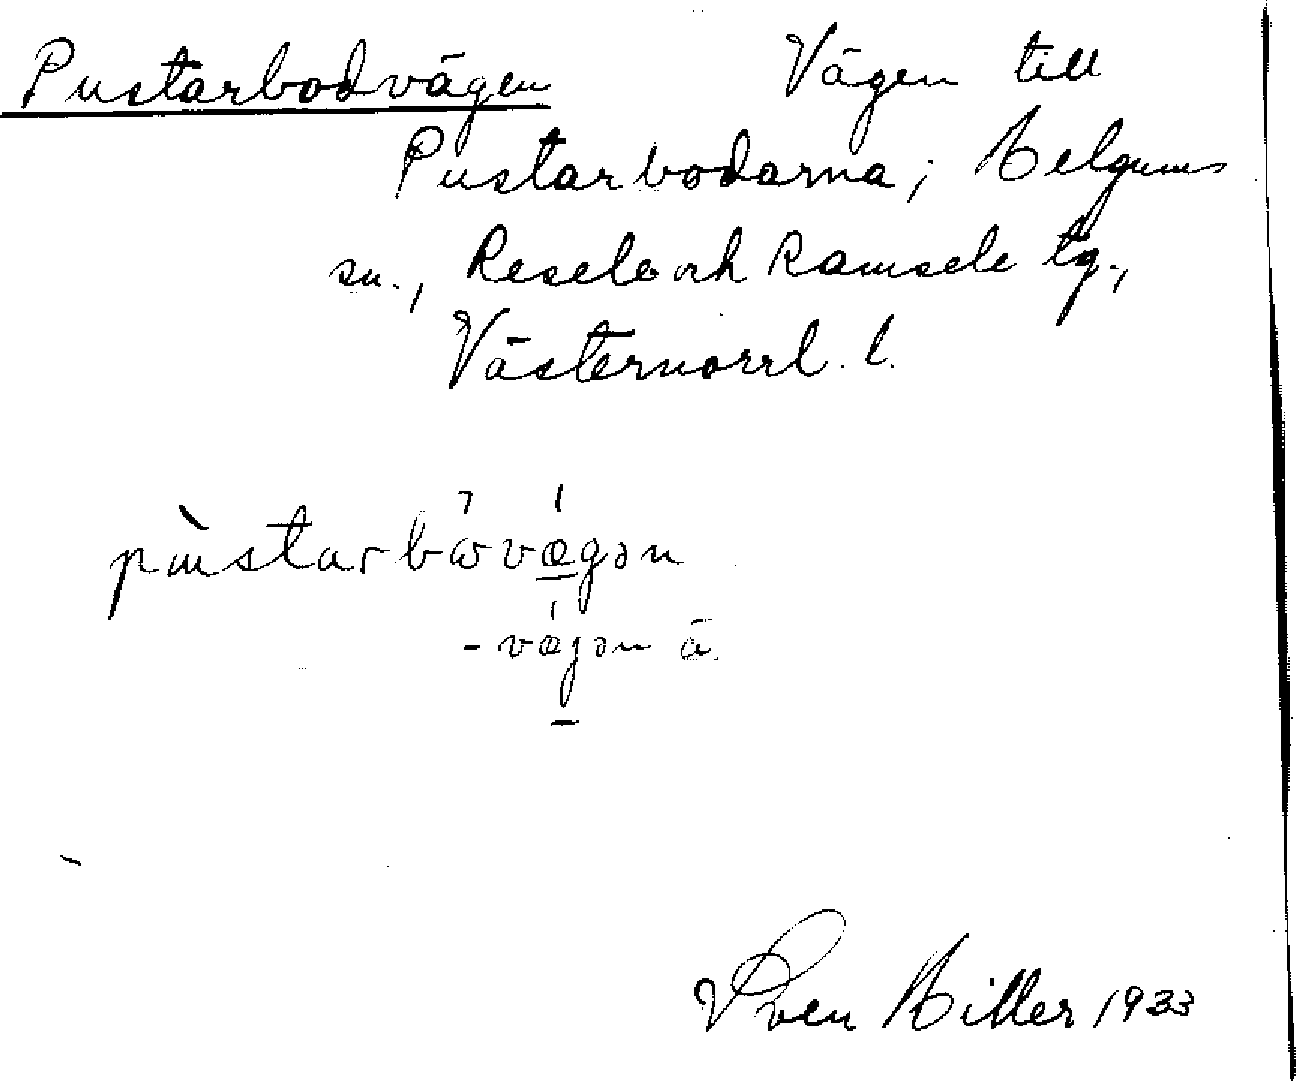 Pustarbodvägen Vägen till
Pustarbodarna; Helgums
sn., Resele och Ramsele tg.,
Västernorrl. l.
-vægən ä.
Sven Hiller 1933